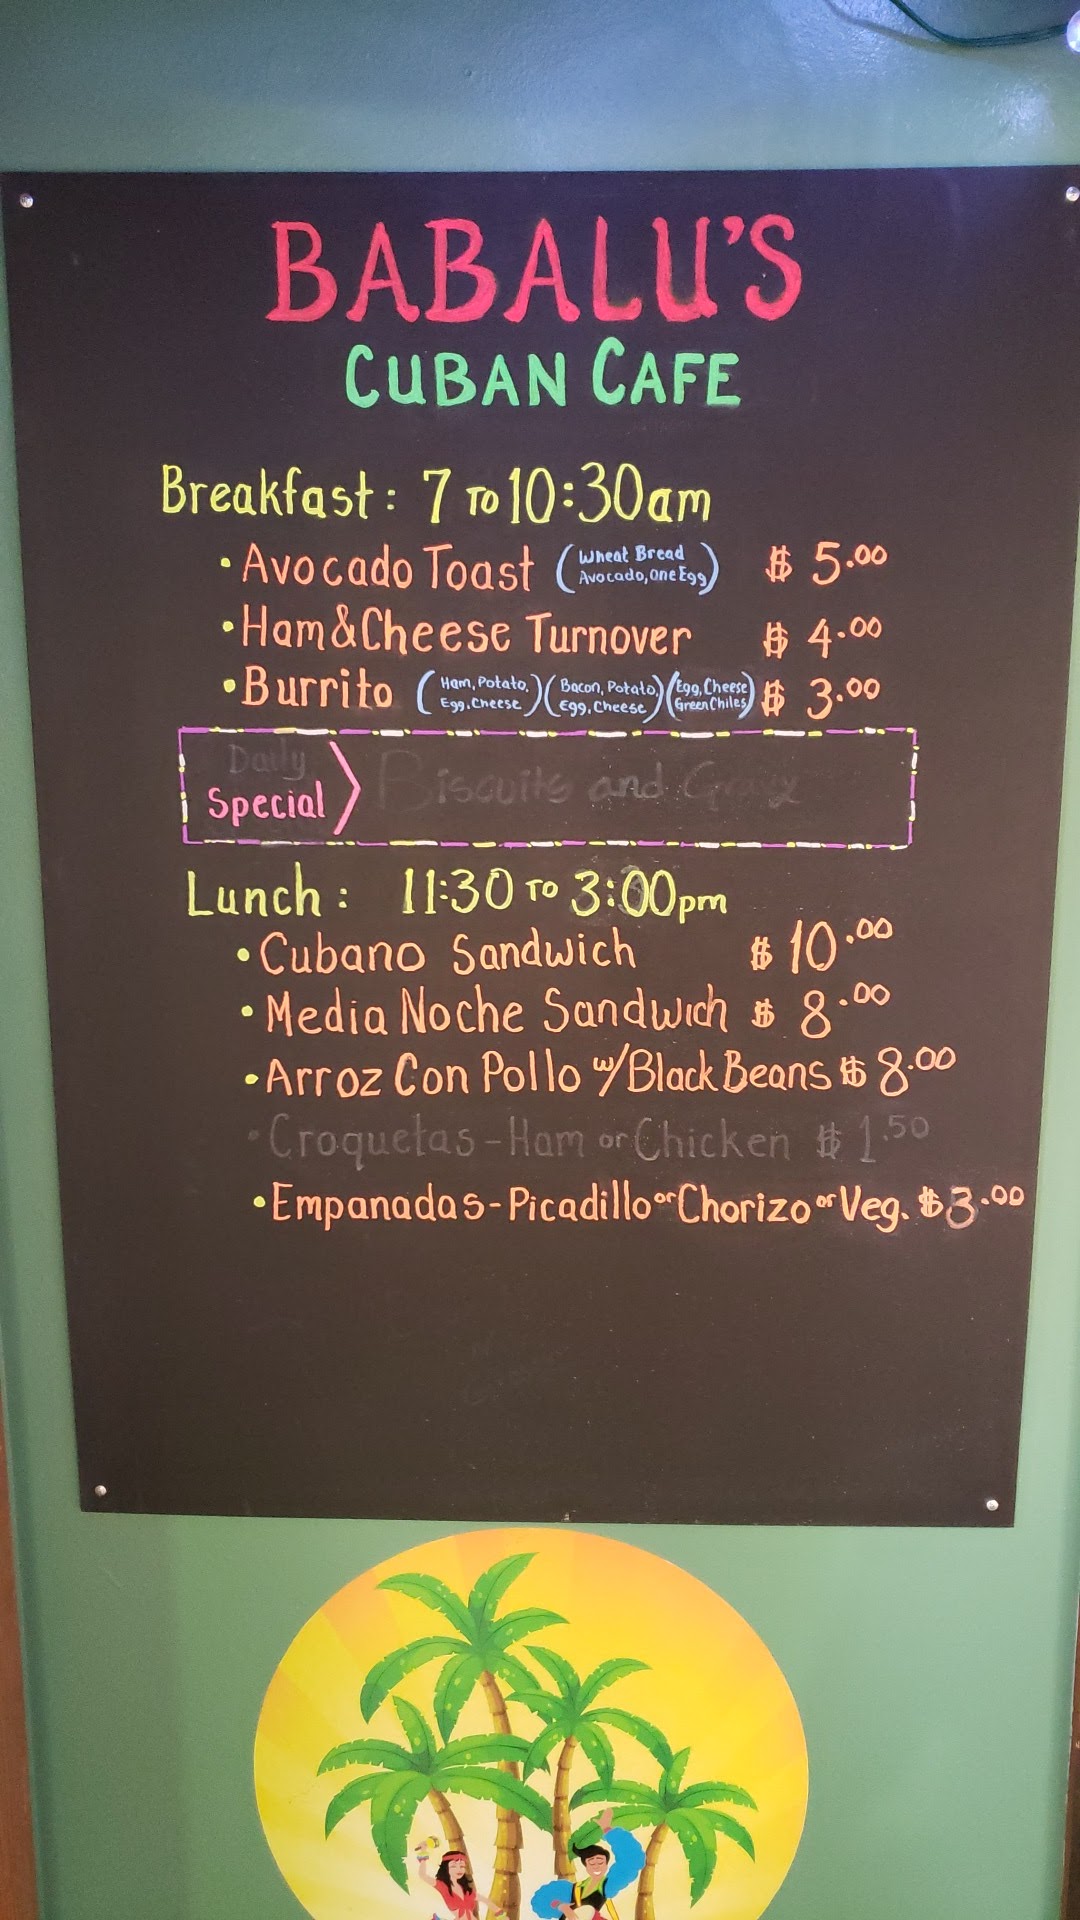 BABALU'S
CUBAN CAFE
Breakfast: 7 TO 10:30am
• Avocado Toast (Wheat Bread Avocado, One Egg) $ 5.00
• Ham & Cheese Turnover $ 4.00
• Burrito (Ham, Potato, Egg, Cheese) (Bacon, Potato, Egg, Cheese) (Egg, Cheese Green Chiles) $ 3.00
Daily
Special
Biscuits and Gravy
Lunch: 11:30 TO 3:00pm
• Cubano Sandwich $ 10.00
• Media Noche Sandwich $ 8.00
• Arroz Con Pollo w/ Black Beans $ 8.00
• Croquetas - Ham or Chicken $ 1.50
• Empanadas - Picadillo or Chorizo or Veg. $ 3.00